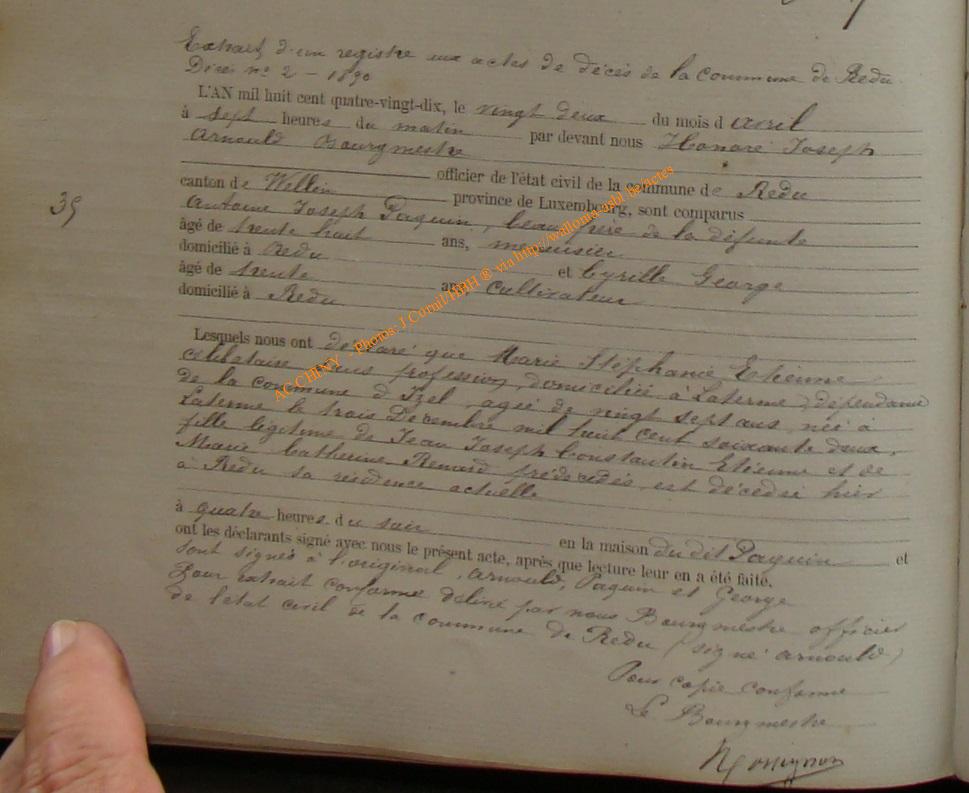 Extrait d'un registre aux actes de décès de la commune de Redu
Décès n° 2 - 1890
L'AN mil huit cent quatre-vingt-dix, le vingt deux du mois d avril
à sept heures du matin par devant nous Honoré Joseph
Arnould Bourgmestre
officier de l'état civil de la commune de Redu
canton de Wellin province de Luxembourg, sont comparus
Antoine Joseph Paquin, beau frère de la défunte
âgé de trente huit ans, menuisier
domicilié à Redu et Cyrille George
âgé de trente ans, cultivateur
domicilié à Redu
35
Lesquels nous ont déclaré que Marie Stéphanie Etienne
célibataire sans profession, domiciliée à Laterme, dépendance
de la commune d'Izel, agée de vingt sept ans, née à
Laterme le trois Décembre mil huit cent soixante deux,
fille légitime de Jean Joseph Constantin Etienne et de
Marie Catherine Renard prédécédés, est décédée hier
à Redu sa résidence actuelle
à quatre heures du soir en la maison du dit Paquin et
ont les déclarants signé avec nous le présent acte, après que lecture leur en a été faite.
sont signés à l'original, Arnould, Paquin et George
Pour extrait conforme délivré par nous Bourgmestre officier
de l'état civil de la commune de Redu (signé Arnould)
Pour copie conforme
Le Bourgmestre
AC CHINY - Photos: J.Cornil/HBH ® via http://wallonia-asbl.be/actes